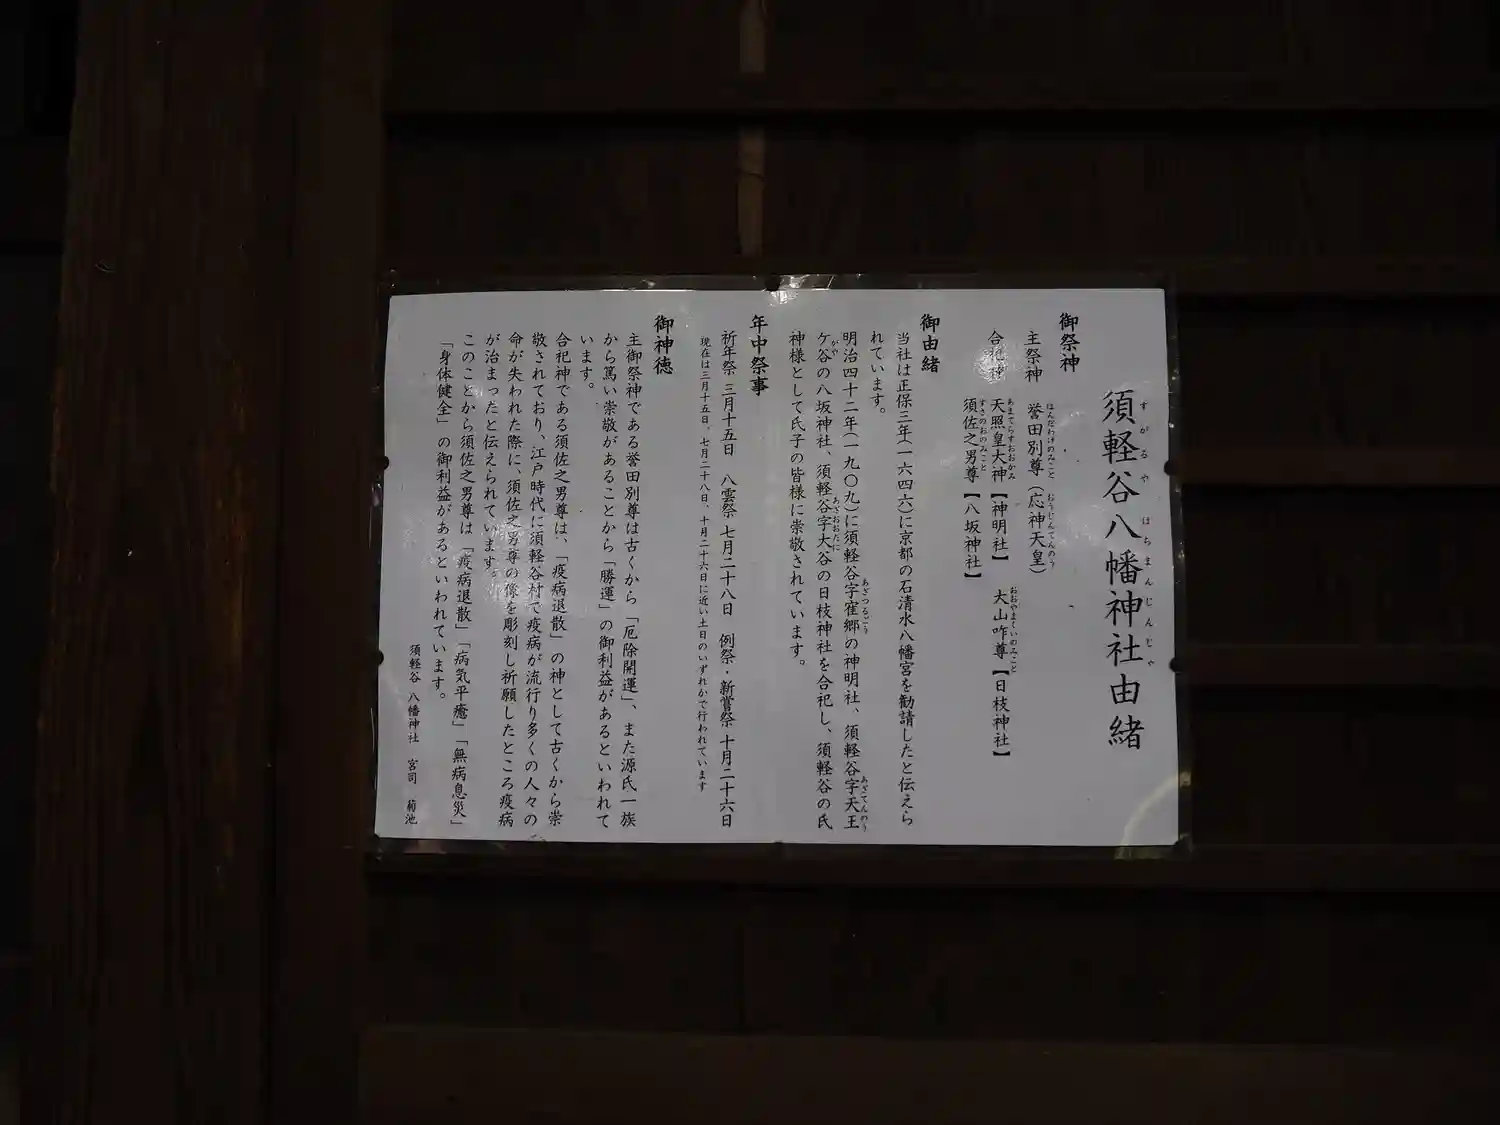 須軽谷八幡神社由緒
御祭神
主祭神 誉田別尊（応神天皇）
合祀神 天照皇大神【神明社】 大山咋尊【日枝神社】
須佐之男尊【八坂神社】
御由緒
当社は正保三年（一六四六）に京都の石清水八幡宮を勧請したと伝えら
れています。
明治四十二年（一九〇九）に須軽谷字窪郷の神明社、須軽谷字天王
ケ谷の八坂神社、須軽谷字大谷の日枝神社を合祀し、須軽谷の氏
神様として氏子の皆様に崇敬されています。
年中祭事
祈年祭 三月十五日 八雲祭 七月二十八日 例祭・新嘗祭 十月二十六日
現在は三月十五日、七月二十八日、十月二十六日に近い土日のいずれかで行われています
御神徳
主御祭神である誉田別尊は古くから「厄除開運」、また源氏一族
から篤い崇敬があることから「勝運」の御利益があるといわれて
います。
合祀神である須佐之男尊は、「疫病退散」の神として古くから崇
敬されており、江戸時代に須軽谷村で疫病が流行り多くの人々の
命が失われた際に、須佐之男尊の像を彫刻し祈願したところ疫病
が治まったと伝えられています。
このことから須佐之男尊は「疫病退散」「病気平癒」「無病息災」
「身体健全」の御利益があるといわれています。
須軽谷 八幡神社 宮司 菊池